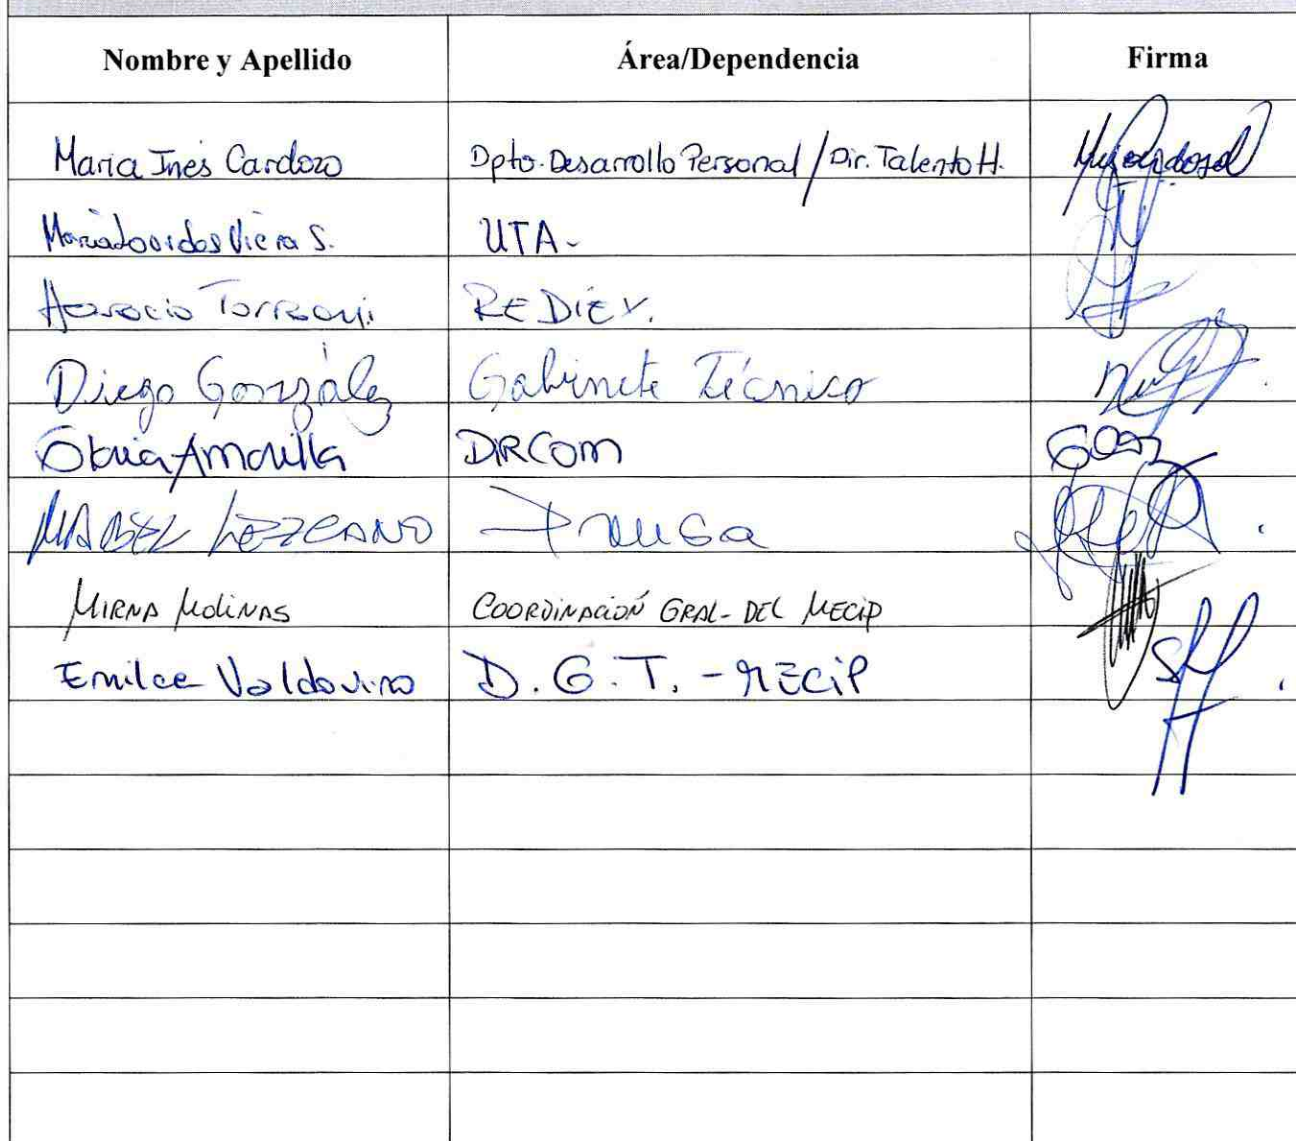 Nombre y Apellido Área/Dependencia Firma
Maria Inés Cardozo Dpto. Desarrollo Personal / Dir. Talento H.
Maria Lourdes Viera S. UTA-
Horacio REDIEX.
Diego González Gabinete Técnico
Amarilla DIRCOM
MABEL LEZCANO
MIRNA MOLINAS COORDINACIÓN GRAL- DEL MECIP
Emilce Valdovino D. G. T. - MECIP